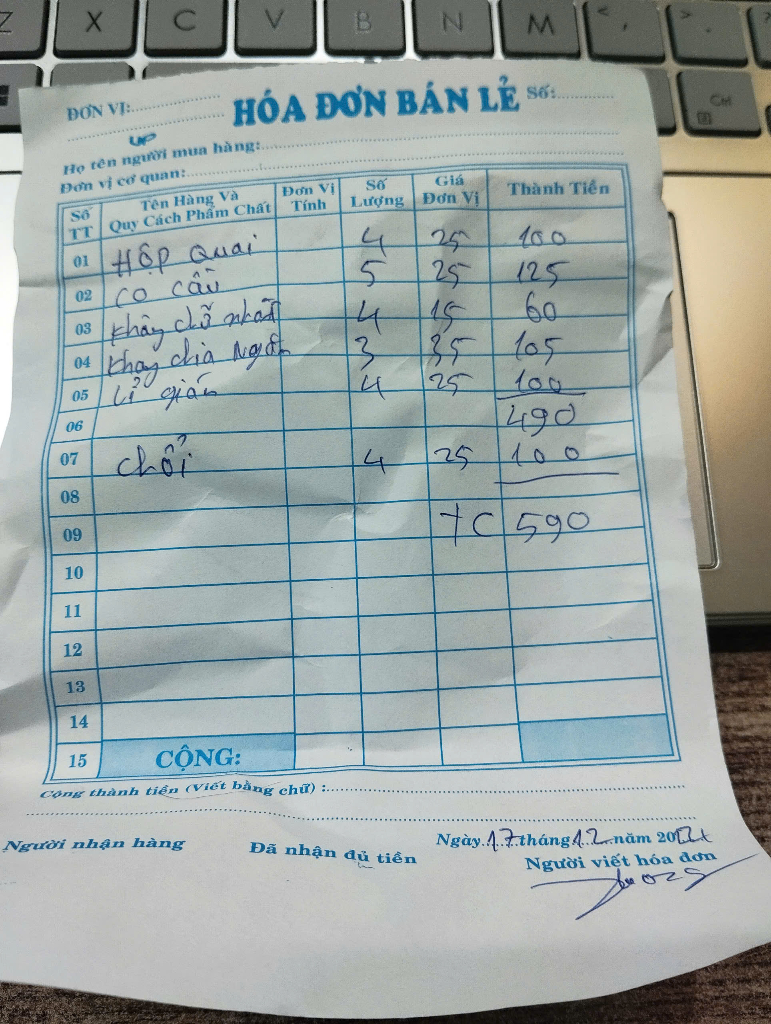 Z X C V B N M < , > .
Ctrl
ĐƠN VỊ:
HÓA ĐƠN BÁN LẺ Số:
Họ tên người mua hàng:
Đơn vị cơ quan:
Số TT Tên Hàng Và Quy Cách Phẩm Chất Đơn Vị Tính Số Lượng Giá Đơn Vị Thành Tiền
01 Hộp Quai 4 25 100
02 cọ cầu 5 25 125
03 khay chữ nhật 4 15 60
04 khay chia Ngăn 3 35 105
05 giấy 4 25 100
06 490
07 chổi 4 25 100
08
09 TC 590
10
11
12
13
14
15 CỘNG:
Cộng thành tiền (Viết bằng chữ) :
Ngày 17 tháng 12 năm 20
Người nhận hàng Đã nhận đủ tiền Người viết hóa đơn